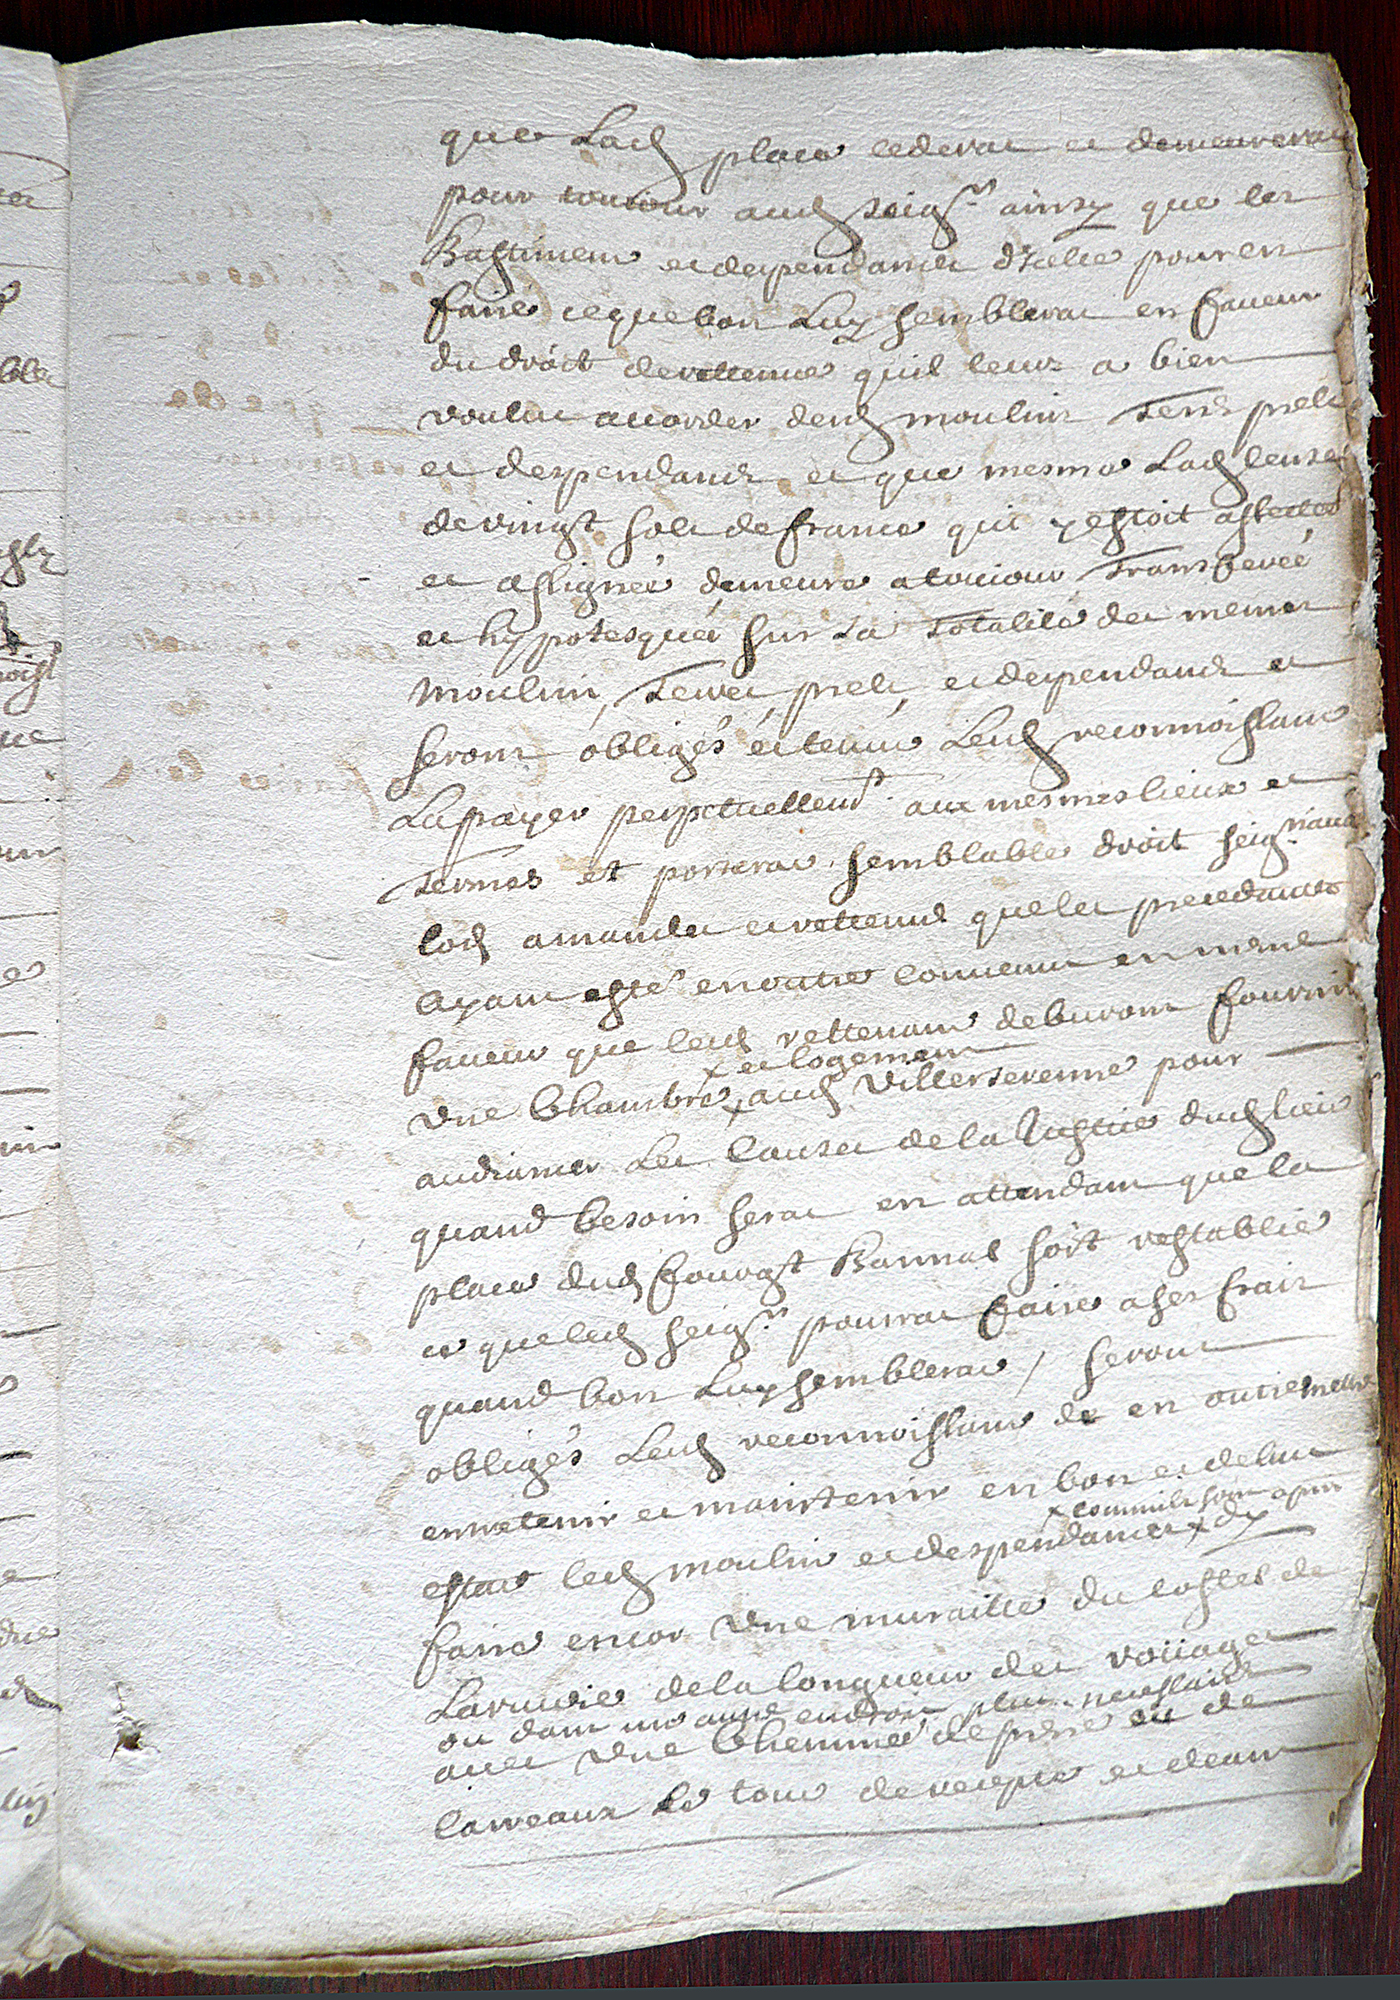 que Lad place cederat et demeurerat
pour toutiour aud seigr ainsy que les
Bastimens et despendances d'icelle pour en
faire ce que bon Luy semblerat en faveur
du droit de rettenue quil leurs a bien
voulut accorder desd moulins Terres prels
et despendances et que mesme Lad cense
de vingt sols de france qui y estoit affectée
et assignée demeure a toutiour Transferée
et hypotesquée sur La Totalité des mesmes
Moulin, Terres, prels, et despendances et
seront obligés et tenus Lesd reconnoissans
La payer perpetuellemt aux mesmes lieux et
Termes et porterat semblable droit seigriaux
lods amandes et rettenues que les precedantes
Ayant esté en outre convenus en mesme
faveur que lesd rettenans deburont fournir
x et logement
Une Chambre x aud Villersevenne pour
audiancer Les Causes de la Justice dud lieu
quand besoin serat en attendant que la
place dud fourgt Bannal soit restablie
ce que led seigr pourrat faire a ses frais
quand bon Luy semblerat / seront
obligés Lesd reconnoissans de en outre
entretenir et maintenir en bon et dehut
x commils sont apres
estat led moulin et despendances x d'y
faire encor Une muraille du costel de
La rivière de la longueur des rouages
ou dans une autre endroit plus necessaire
avec Une Cheminée de pierre ou de
carreaux Le tout de recepte et dans